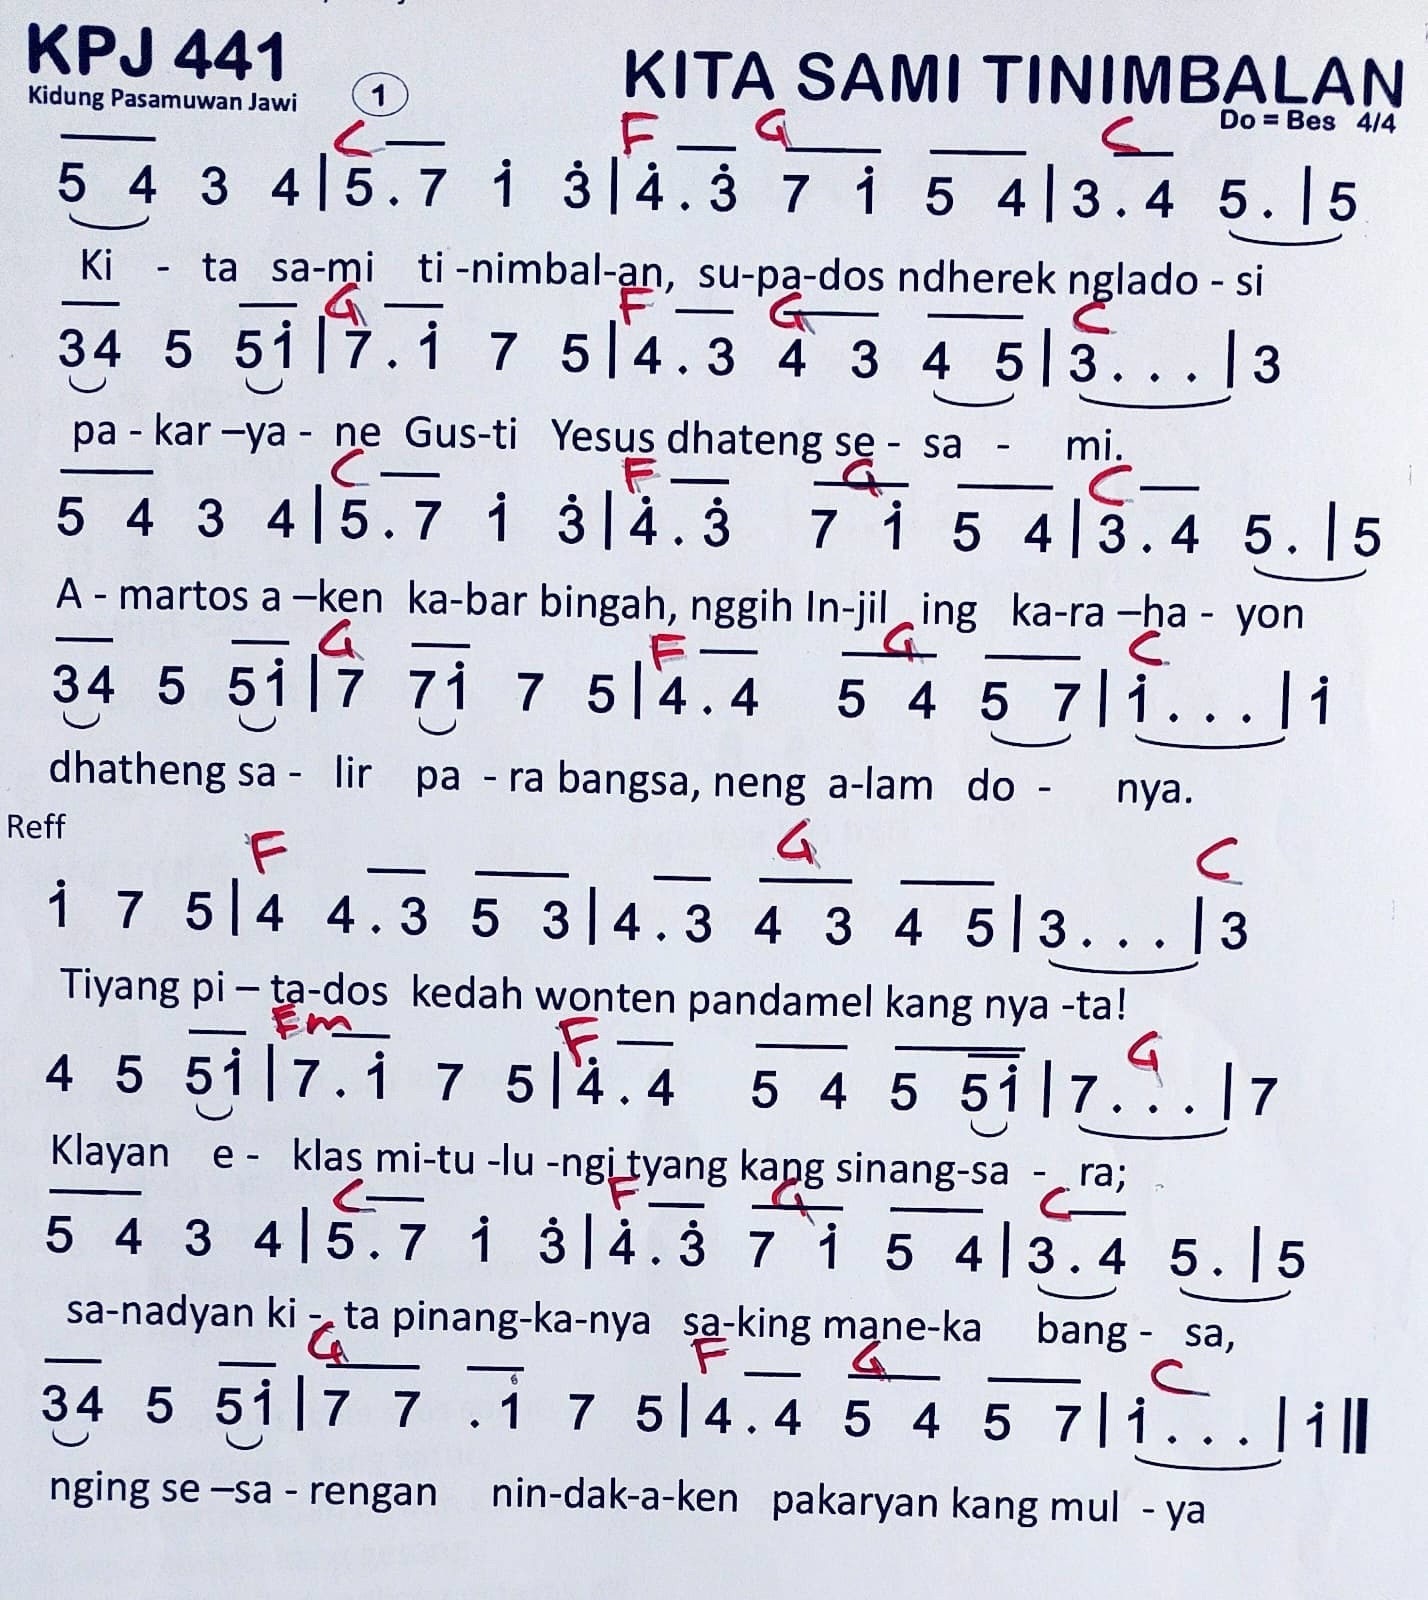 KPJ 441
Kidung Pasamuwan Jawi
1
KITA SAMI TINIMBALAN
Do = Bes 4/4
C F G C
5 4 3 4 | 5 . 7 i 3̇ | 4̇ . 3̇ 7 i 5 4 | 3 . 4 5 . | 5
Ki - ta sa-mi ti -nimbal-an, su-pa-dos ndherek nglado - si
G F G C
34 5 5i | 7 . i 7 5 | 4 . 3 4 3 4 5 | 3 . . . | 3
pa - kar –ya - ne Gus-ti Yesus dhateng se - sa - mi.
C F G C
5 4 3 4 | 5 . 7 i 3̇ | 4̇ . 3̇ 7 i 5 4 | 3 . 4 5 . | 5
A - martos a –ken ka-bar bingah, nggih In-jil ing ka-ra –ha - yon
G F G C
34 5 5i | 7 7i 7 5 | 4 . 4 5 4 5 7 | i . . . | i
dhatheng sa - lir pa - ra bangsa, neng a-lam do - nya.
Reff
F G C
i 7 5 | 4 4 . 3 5 3 | 4 . 3 4 3 4 5 | 3 . . . | 3
Tiyang pi – ta-dos kedah wonten pandamel kang nya -ta!
Em F G
4 5 5i | 7 . i 7 5 | 4̇ . 4 5 4 5 5i | 7 . . . | 7
Klayan e - klas mi-tu -lu -ngi tyang kang sinang-sa - ra;
C F G C
5 4 3 4 | 5 . 7 i 3̇ | 4̇ . 3̇ 7 i 5 4 | 3 . 4 5 . | 5
sa-nadyan ki - ta pinang-ka-nya sa-king mane-ka bang - sa,
G F G C
34 5 5i | 7 7 . i 7 5 | 4 . 4 5 4 5 7 | i . . . | i ||
nging se –sa - rengan nin-dak-a-ken pakaryan kang mul - ya